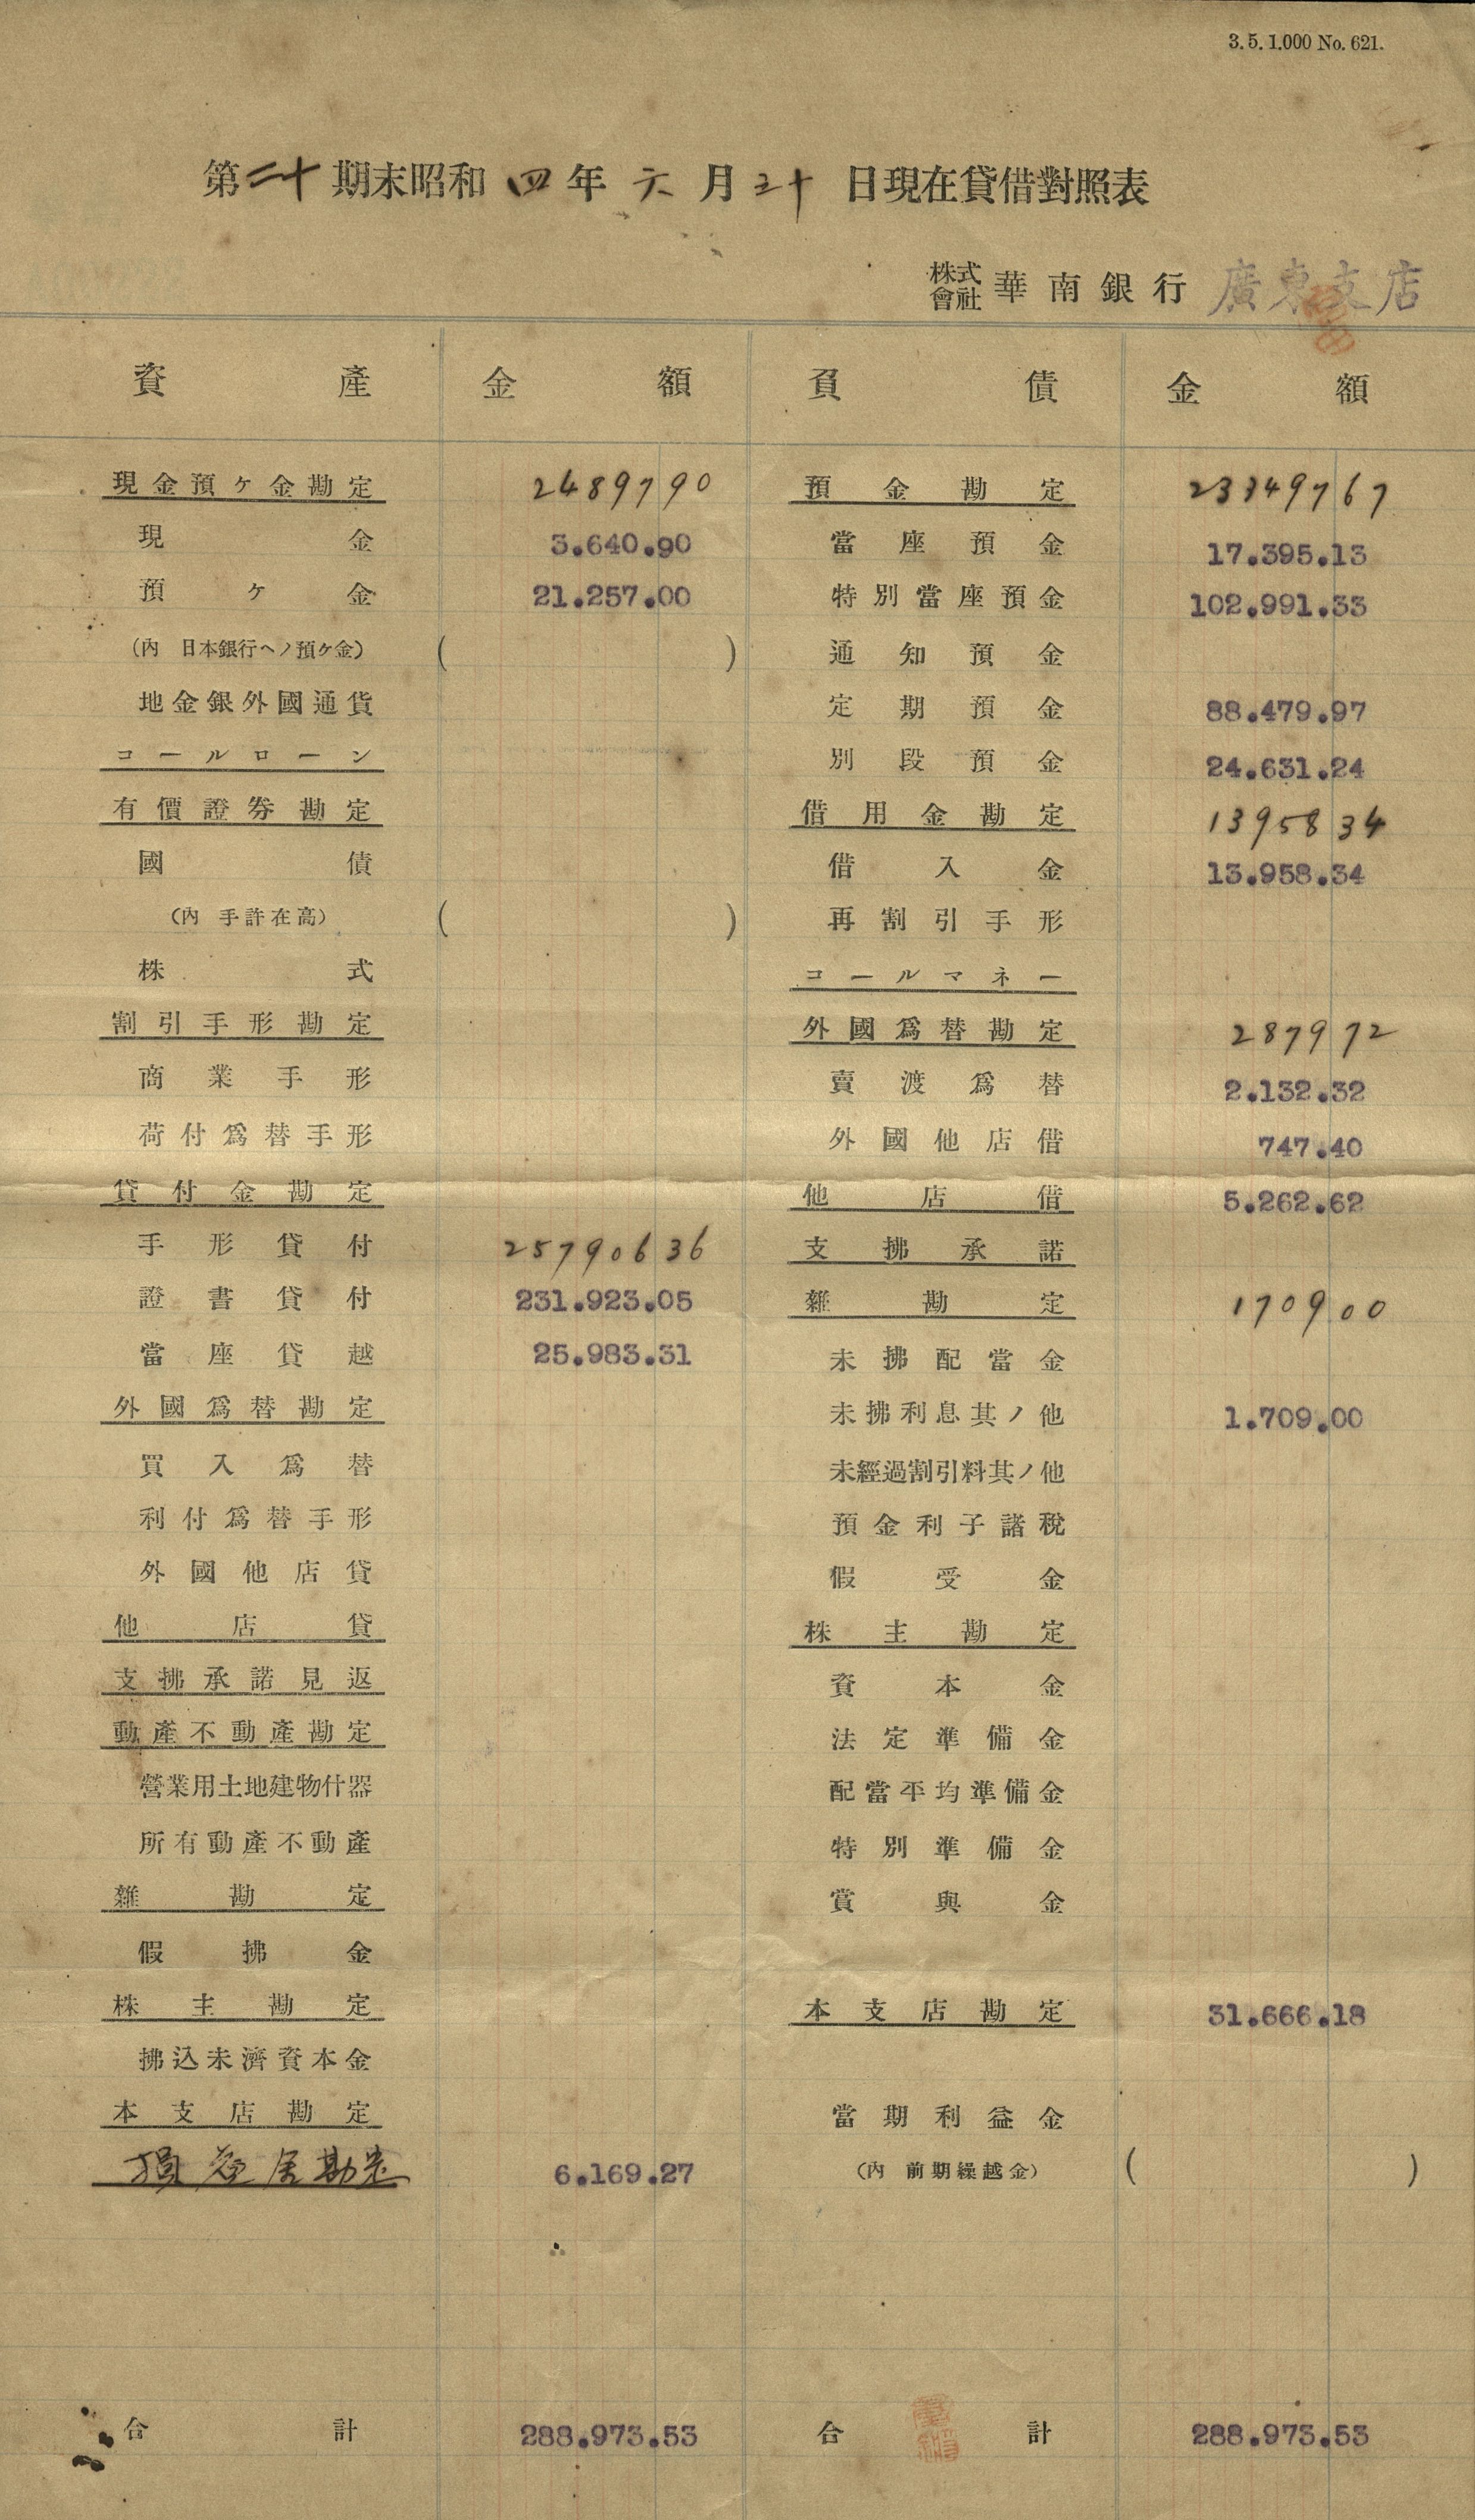 3.5.1.000 No.621.
第二十期末昭和四年六月三十日現在貸借對照表
株式會社華南銀行廣東支店
資產 金額 負債 金額
現金預ケ金勘定 2489790 預金勘定 23349767
現金 3.640.90 當座預金 17.395.13
預ケ金 21.257.00 特別當座預金 102.991.33
(內 日本銀行ヘノ預ケ金) ( ) 通知預金
地金銀外國通貨 定期預金 88.479.97
コールローン 別段預金 24.631.24
有價證券勘定 借用金勘定 1395834
國債 借入金 13.958.34
(內 手許在高) ( ) 再割引手形
株式 コールマネー
割引手形勘定 外國爲替勘定 287972
商業手形 賣渡爲替 2.132.32
荷付爲替手形 外國他店借 747.40
貸付金勘定 他店借 5.262.62
手形貸付 25790636 支拂承諾
證書貸付 231.923.05 雜勘定 170900
當座貸越 25.983.31 未拂配當金
外國爲替勘定 未拂利息其ノ他 1.709.00
買入爲替 未經過割引料其ノ他
利付爲替手形 預金利子諸稅
外國他店貸 假受金
他店貸 株主勘定
支拂承諾見返 資本金
動產不動產勘定 法定準備金
營業用土地建物什器 配當平均準備金
所有動產不動產 特別準備金
雜勘定 賞與金
假拂金
株主勘定 本支店勘定 31.666.18
拂込未濟資本金
本支店勘定 當期利益金
損益金勘定 6.169.27 (內 前期繰越金) ( )
合計 288.973.53 合計 288.973.53